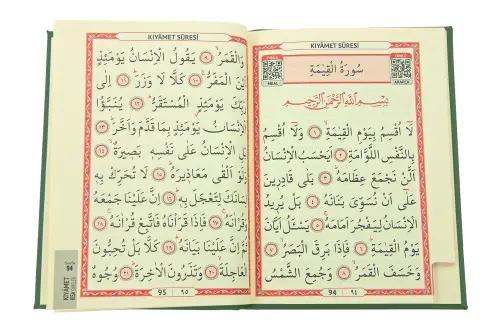 KIYÂMET SÛRESİ
MEAL
ARAPÇA
سُورَةُ الْقِيٰمَةِ
بِسْمِ اللّٰهِ الرَّحْمٰنِ الرَّحِيمِ
لَٓا اُقْسِمُ بِيَوْمِ الْقِيٰمَةِ ﴿١﴾ وَلَٓا اُقْسِمُ
بِالنَّفْسِ اللَّوَّامَةِ ﴿٢﴾ اَيَحْسَبُ الْاِنْسَانُ
اَلَّنْ نَجْمَعَ عِظَامَهُ ﴿٣﴾ بَلٰى قَادِرِينَ
عَلٰٓى اَنْ نُسَوِّيَ بَنَانَهُ ﴿٤﴾ بَلْ يُرِيدُ
الْاِنْسَانُ لِيَفْجُرَ اَمَامَهُ ﴿٥﴾ يَسْـَٔلُ اَيَّانَ
يَوْمُ الْقِيٰمَةِ ﴿٦﴾ فَاِذَا بَرِقَ الْبَصَرُ ﴿٧﴾
وَخَسَفَ الْقَمَرُ ﴿٨﴾ وَجُمِعَ الشَّمْسُ
94 ٩٤
KIYÂMET SÛRESİ
وَالْقَمَرُ ﴿٩﴾ يَقُولُ الْاِنْسَانُ يَوْمَئِذٍ
اَيْنَ الْمَفَرُّ ﴿١٠﴾ كَلَّا لَا وَزَرَ ﴿١١﴾ اِلٰى
رَبِّكَ يَوْمَئِذٍ الْمُسْتَقَرُّ ﴿١٢﴾ يُنَبَّؤُا
الْاِنْسَانُ يَوْمَئِذٍ بِمَا قَدَّمَ وَاَخَّرَ ﴿١٣﴾
بَلِ الْاِنْسَانُ عَلٰى نَفْسِهِ بَصِيرَةٌ ﴿١٤﴾
وَلَوْ اَلْقٰى مَعَاذِيرَهُ ﴿١٥﴾ لَا تُحَرِّكْ بِهِ
لِسَانَكَ لِتَعْجَلَ بِهِ ﴿١٦﴾ اِنَّ عَلَيْنَا جَمْعَهُ
وَقُرْاٰنَهُ ﴿١٧﴾ فَاِذَا قَرَأْنَاهُ فَاتَّبِعْ قُرْاٰنَهُ ﴿١٨﴾
ثُمَّ اِنَّ عَلَيْنَا بَيَانَهُ ﴿١٩﴾ كَلَّا بَلْ تُحِبُّونَ
الْعَاجِلَةَ ﴿٢٠﴾ وَتَذَرُونَ الْاٰخِرَةَ ﴿٢١﴾ وُجُوهٌ
95 ٩٥
94
KIYÂMET